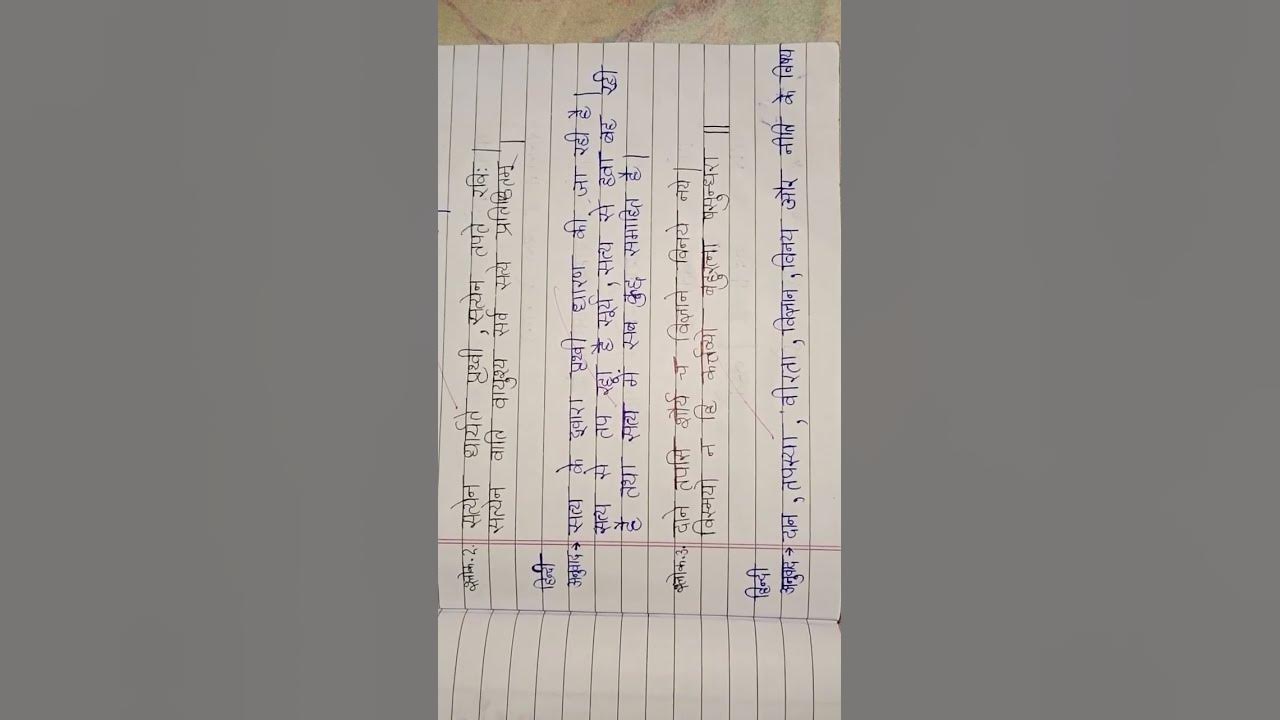 श्लोक.२. सत्येन धार्यते पृथ्वी, सत्येन तपते रविः |
सत्येन वाति वायुश्य सर्व सत्ये प्रतिष्ठितम् |
हिन्दी
अनुवाद → सत्य के द्वारा पृथ्वी धारण की जा रही है |
सत्य से तप रहा है सूर्य, सत्य से हवा बह रही
है तथा सत्य में सब कुछ समाहित है |
श्लोक.३. दाने तपसि शौर्य च विज्ञाने विनये नये |
विस्मयो न हि कर्तव्यो बहुरत्ना वसुन्धरा ||
हिन्दी
अनुवाद → दान, तपस्या, वीरता, विज्ञान, विनय और नीति के विषय